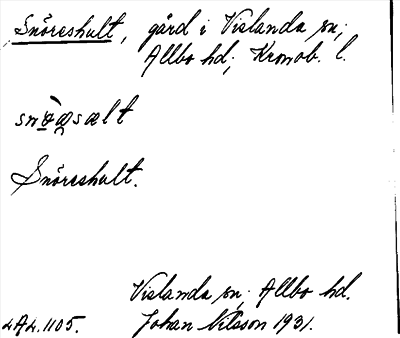 Snöreshult, gård i Vislanda sn;
Allbo hd; Kronob. l.
Snöreshult.
Vislanda sn; Allbo hd.
Johan Nilsson 1931.